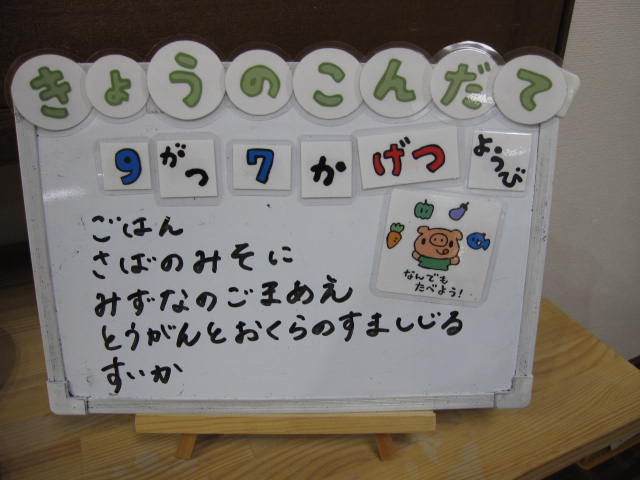 きょうのこんだて
9がつ 7か げつようび
なんでも
たべよう!
ごはん
さばのみそに
みずなのごまあえ
とうがんとおくらのすましじる
すいか